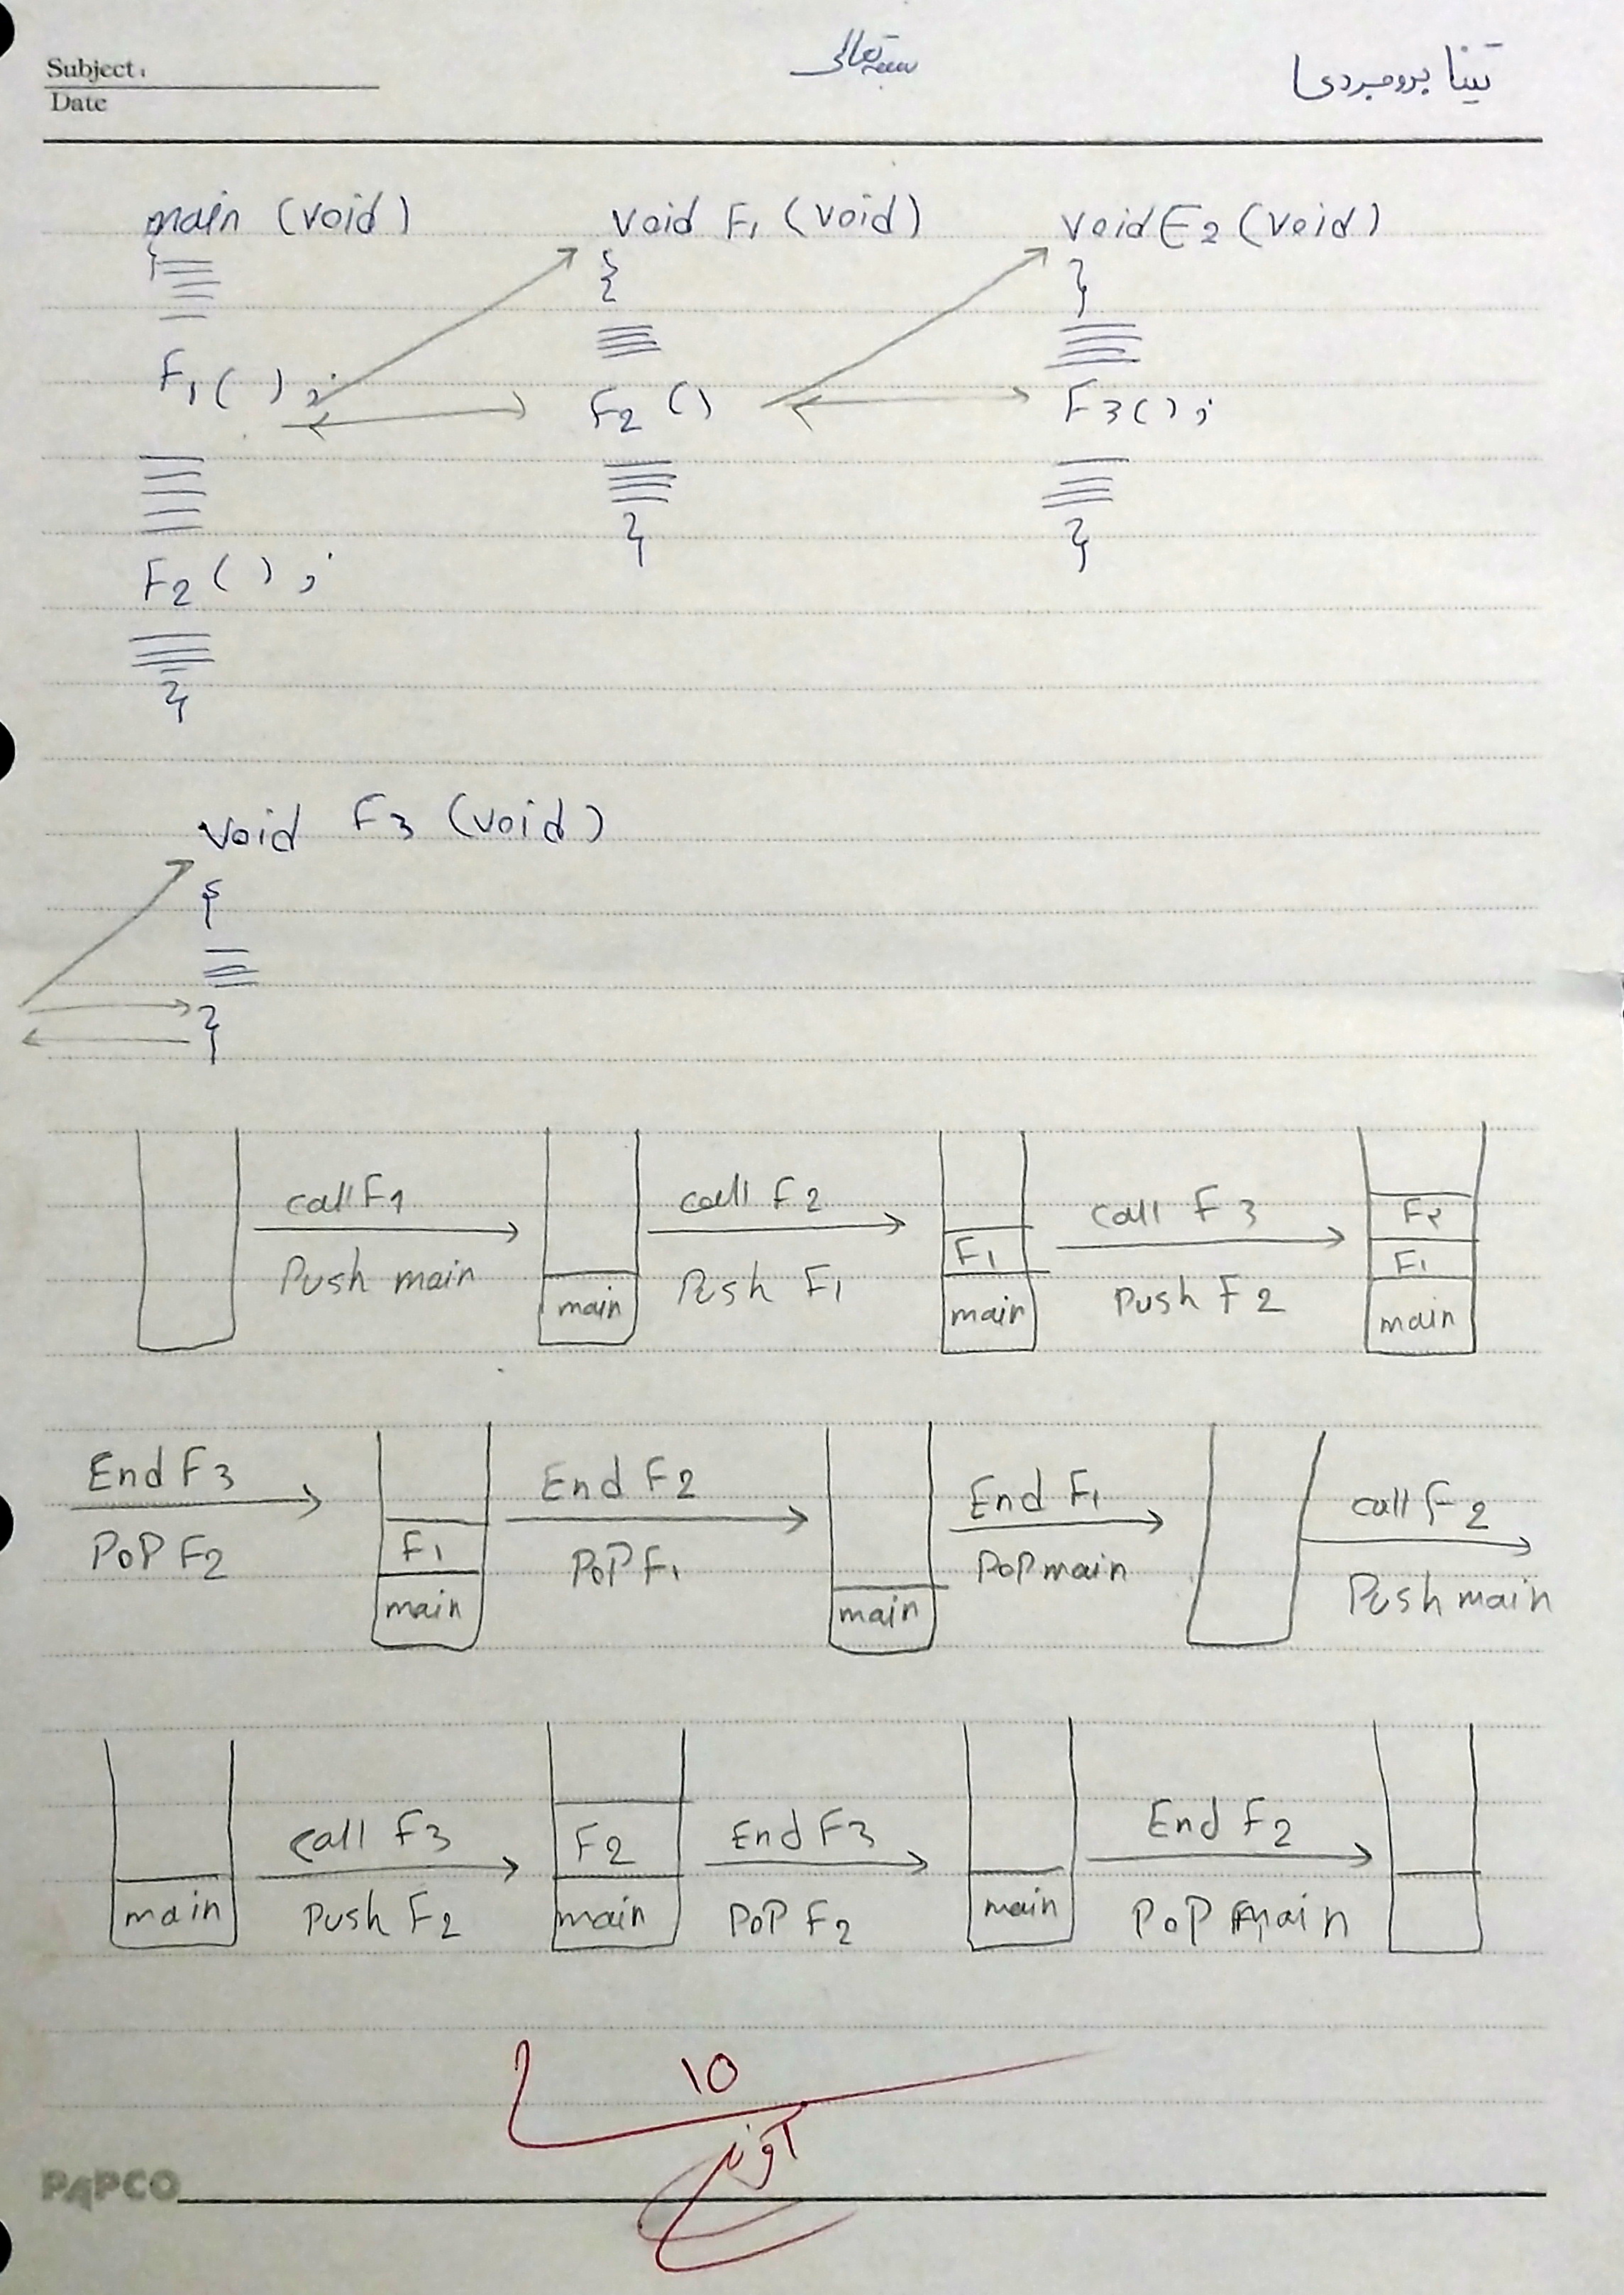 Subject:
Date
بسمه تعالی
تینا بروجردی
main (void)
{
F1 ( ) ;
F2 ( ) ;
}
void F1 (void)
{
F2 ( )
}
void F2 (void)
}
F3 ( ) ;
}
void F3 (void)
{
}
call F1
Push main
main
call F2
Push F1
F1
main
call F3
Push F2
F2
F1
main
End F3
PoP F2
F1
main
End F2
PoP F1
main
End F1
PoP main
call F2
Push main
main
call F3
Push F2
F2
main
End F3
PoP F2
main
End F2
PoP main
10
PAPCO